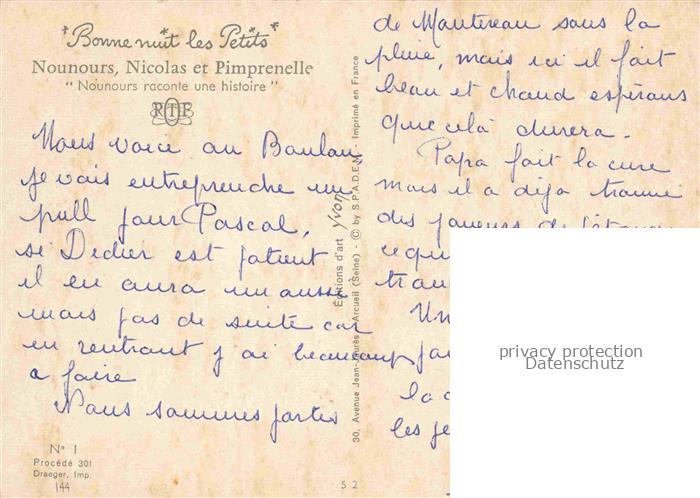 "Bonne nuit les Petits"
Nounours, Nicolas et Pimprenelle
"Nounours raconte une histoire"
RTF
Nous voici au Boulou
je vais entreprendre un
pull pour Pascal,
si Didier est patient
il en aura un aussi
mais pas de suite car
en rentrant j'ai beaucoup
a faire
Nous sommes partis
de Montereau sous la
pluie, mais ici il fait
beau et chaud espérons
que cela durera.
Papa fait la cure
mais il a déja trouvé
des joueurs de
Un
la
les
Editions d'art Yvon
30, Avenue Jean-Jaurès - Arcueil (Seine) - © by S.P.A.D.E.M. Imprimé en France
N° 1
Procédé 301
Draeger, Imp.
144
5 2
privacy protection
Datenschutz